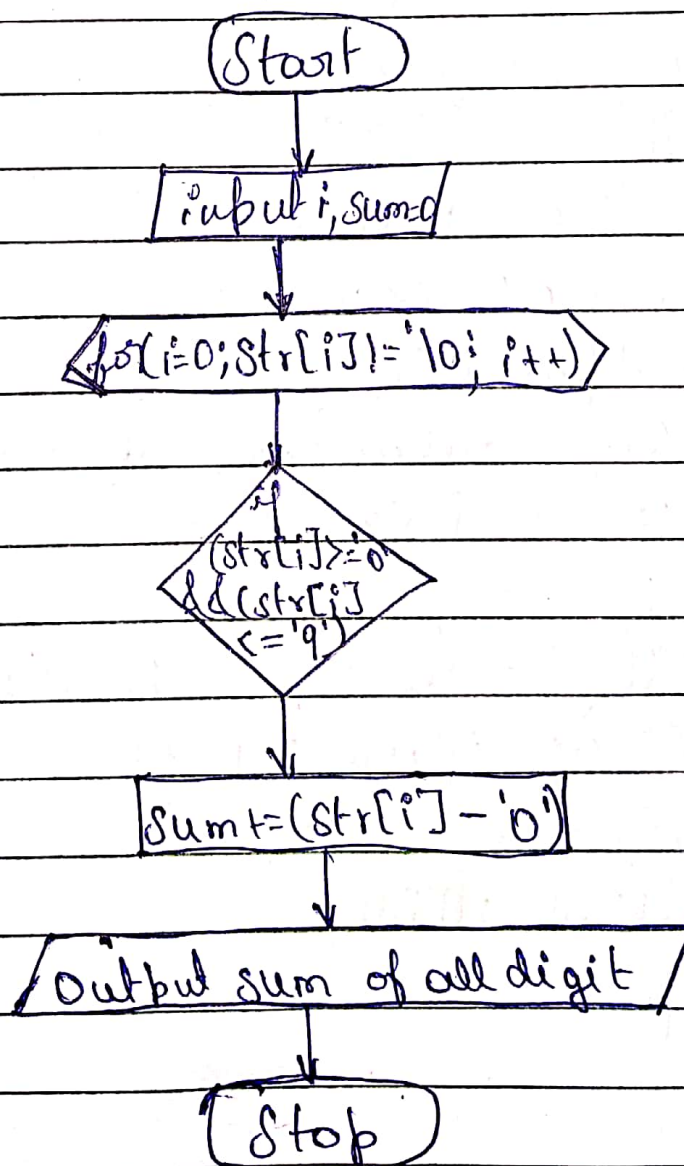 Start
input i, sum=0
for(i=0; str[i]!='\0'; i++)
if
(str[i]>='0'
&&(str[i]
<='9')
sum+=(str[i]-'0')
output sum of all digit
Stop